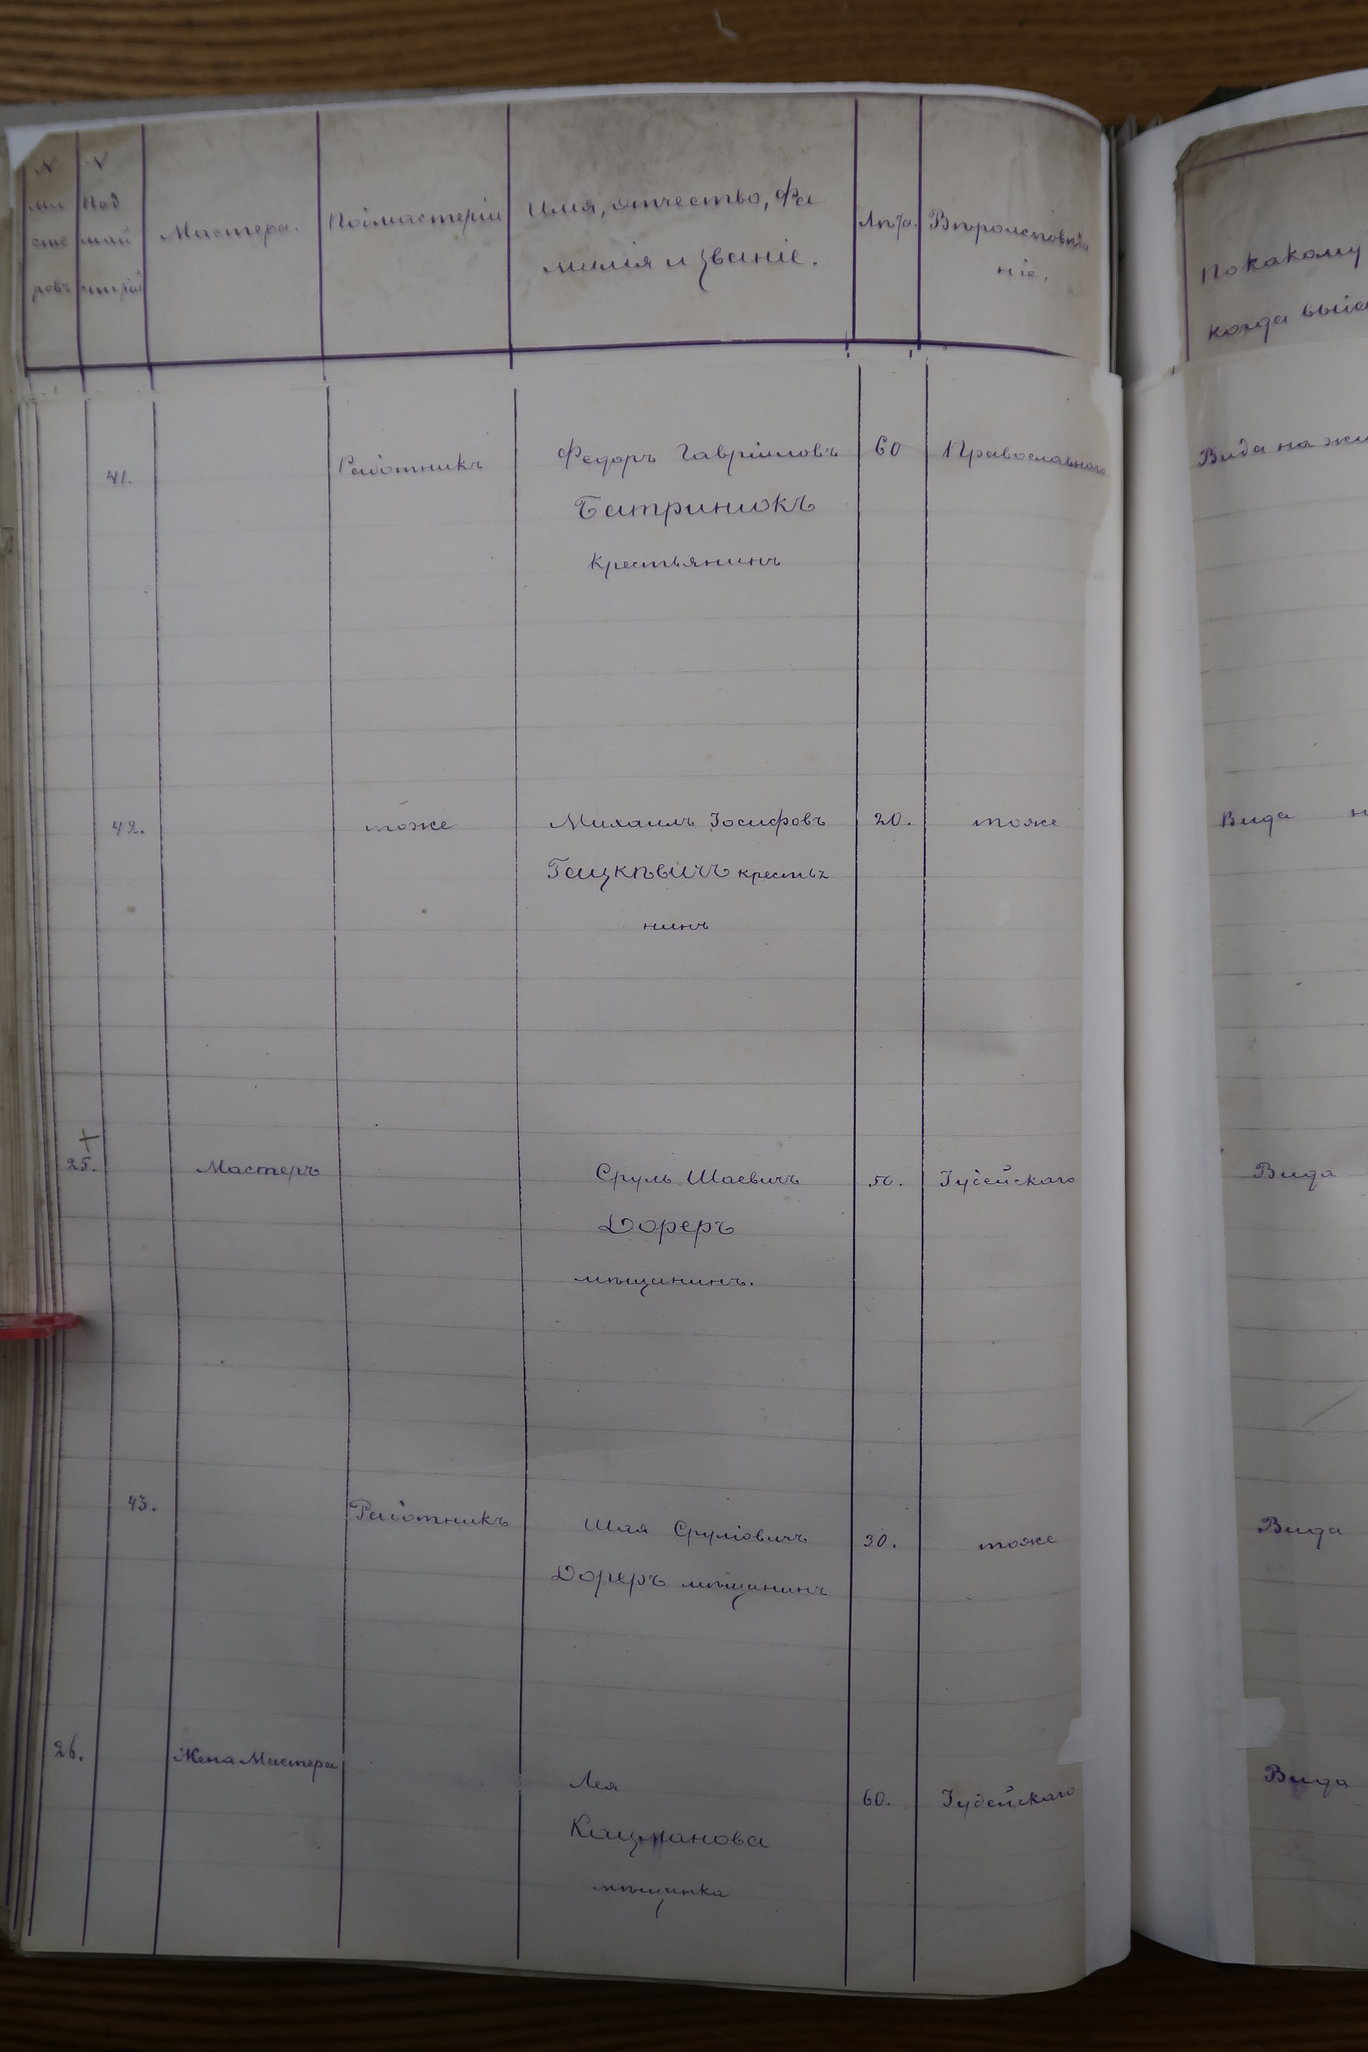 № мастеровъ
№ Подмайстерій
Мастера.
Подмастерія
Имя, отчество, Фа
милія и званіе.
Лѣта.
Вѣроисповѣда
ніе.
По какому
когда выда
41.
Работникъ
Федоръ Гавріиловъ
60
Православнаго
Вида на жи
Батринюкъ
крестьянинъ
42.
тоже
Михаилъ Іосифовъ
20.
тоже
Вида н
Гацкѣвичъ крестья
нинъ
25.
Мастеръ
Сруль Шаевичъ
50.
Іудейскаго
Вида
Дореръ
мѣщанинъ.
43.
Работникъ
Шая Сруліовичъ
30.
тоже
Вида
Дореръ мѣщанинъ
26.
Жена Мастера
Лея
60.
Іудейскаго
Вида
Кацманова
мѣщанка